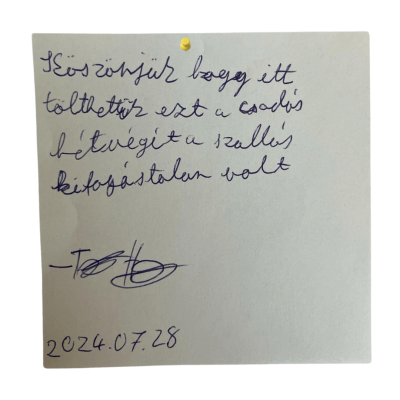 Köszönjük hogy itt
tölthettük ezt a csodás
hétvégit a szállás
kifogástalan volt
2024.07.28